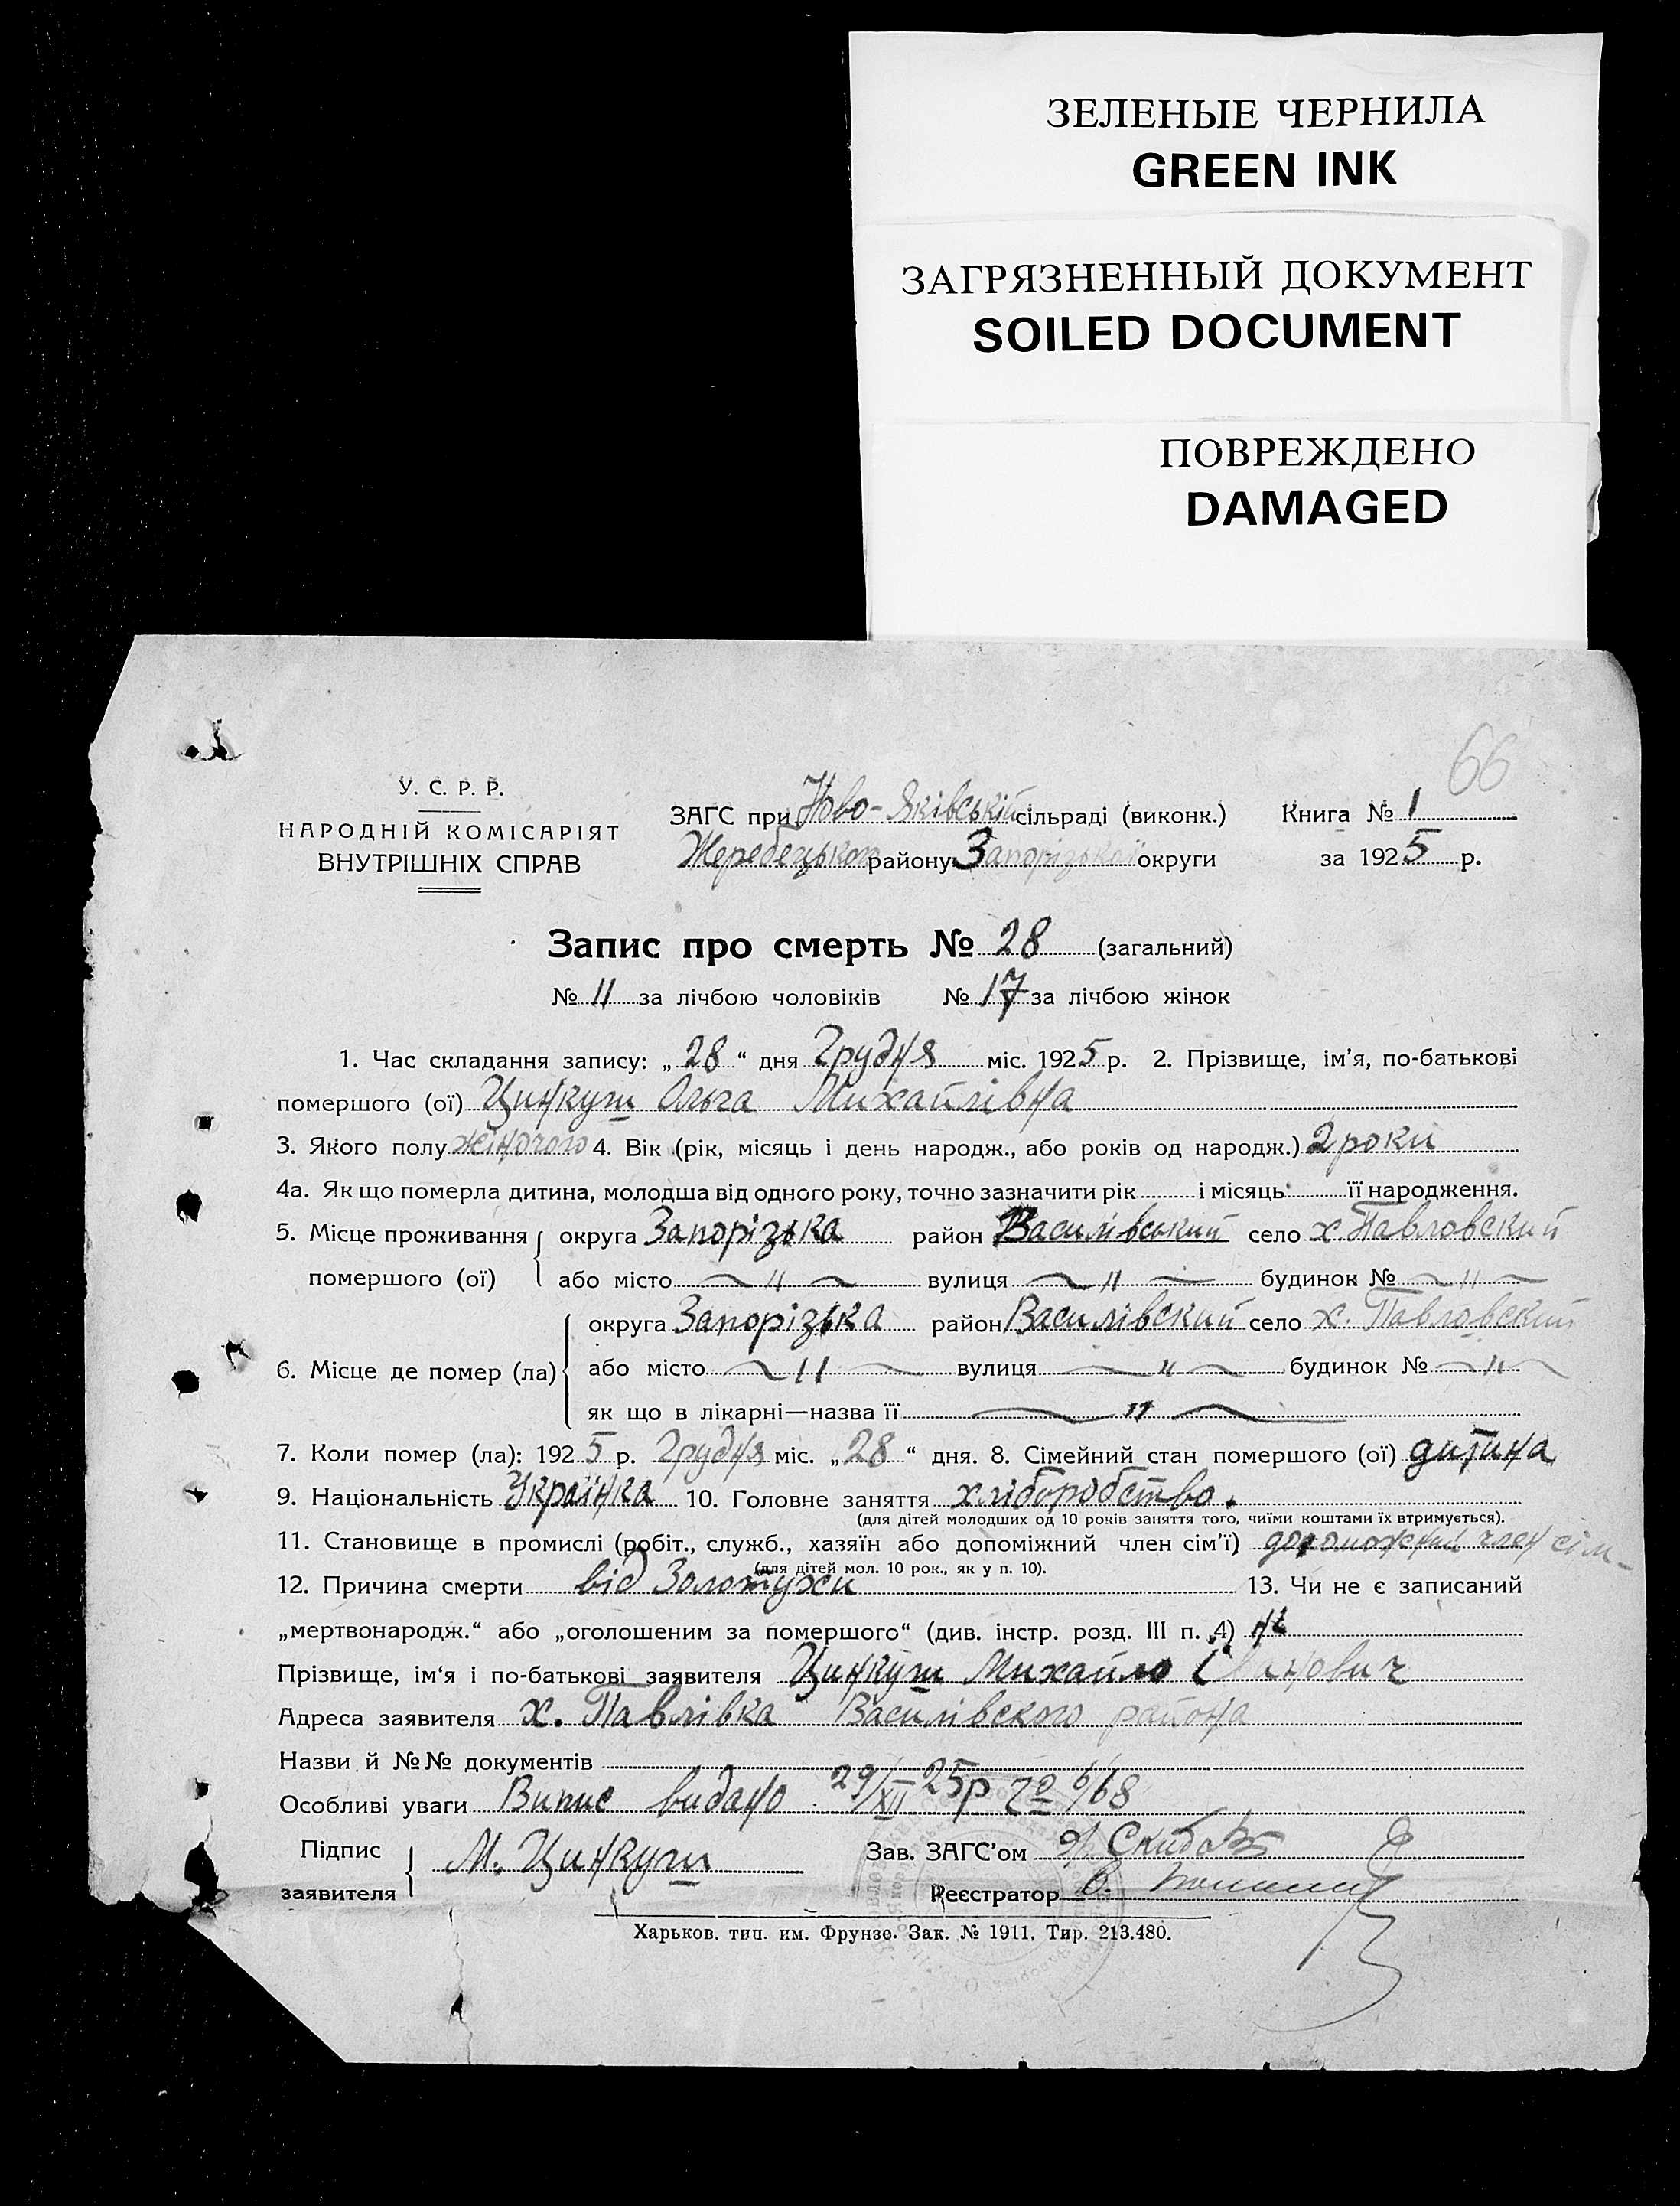 ЗЕЛЕНЫЕ ЧЕРНИЛА
GREEN INK
ЗАГРЯЗНЕННЫЙ ДОКУМЕНТ
SOILED DOCUMENT
ПОВРЕЖДЕНО
DAMAGED
66
У. С. Р. Р.
НАРОДНІЙ КОМІСАРІЯТ
ВНУТРІШНІХ СПРАВ
ЗАГС при Ново-Яківській сільраді (виконк.) Книга № 1
Жеребецького району Запорізької округи за 1925 р.
Запис про смерть № 28 (загальний)
№ 11 за лічбою чоловіків № 17 за лічбою жінок
1. Час складання запису: „28“ дня Грудня міс. 1925 р. 2. Прізвище, ім’я, по-батькові
помершого (ої) Цинкуш Ольга Михайлівна
3. Якого полу жіночого 4. Вік (рік, місяць і день народж., або років од народж.) 2 роки
4а. Як що померла дитина, молодша від одного року, точно зазначити рік і місяць її народження.
5. Місце проживання помершого (ої) округа Запорізька район Василівський село х. Павловский
або місто ~ " ~ вулиця ~ " ~ будинок № ~ " ~
6. Місце де помер (ла) округа Запорізька район Василівский село х. Павловский
або місто ~ " ~ вулиця ~ " ~ будинок № ~ " ~
як що в лікарні—назва її ~ " ~
7. Коли помер (ла): 1925 р. Грудня міс. „28“ дня. 8. Сімейний стан помершого (ої) дитина
9. Національність Українка 10. Головне заняття хліборобство.
(для дітей молодших од 10 років заняття того, чиїми коштами їх втримується).
11. Становище в промислі (робіт., служб., хазяїн або допоміжний член сім’ї) допоможний член сім-
(для дітей мол. 10 рок., як у п. 10).
12. Причина смерти від Золотухи 13. Чи не є записаний
„мертвонародж.“ або „оголошеним за помершого“ (див. інстр. розд. III п. А) ні
Прізвище, ім‘я і по-батькові заявителя Цинкуш Михайло Іванович
Адреса заявителя х. Павлівка Василівского района
Назви й №№ документів
Особливі уваги Випис видано 29/XII 25р
Підпис заявителя М. Цинкуш Зав. ЗАГС’ом
Реєстратор В.
Харьков. тип. им. Фрунзе. Зак. № 1911, Тир. 213.480.